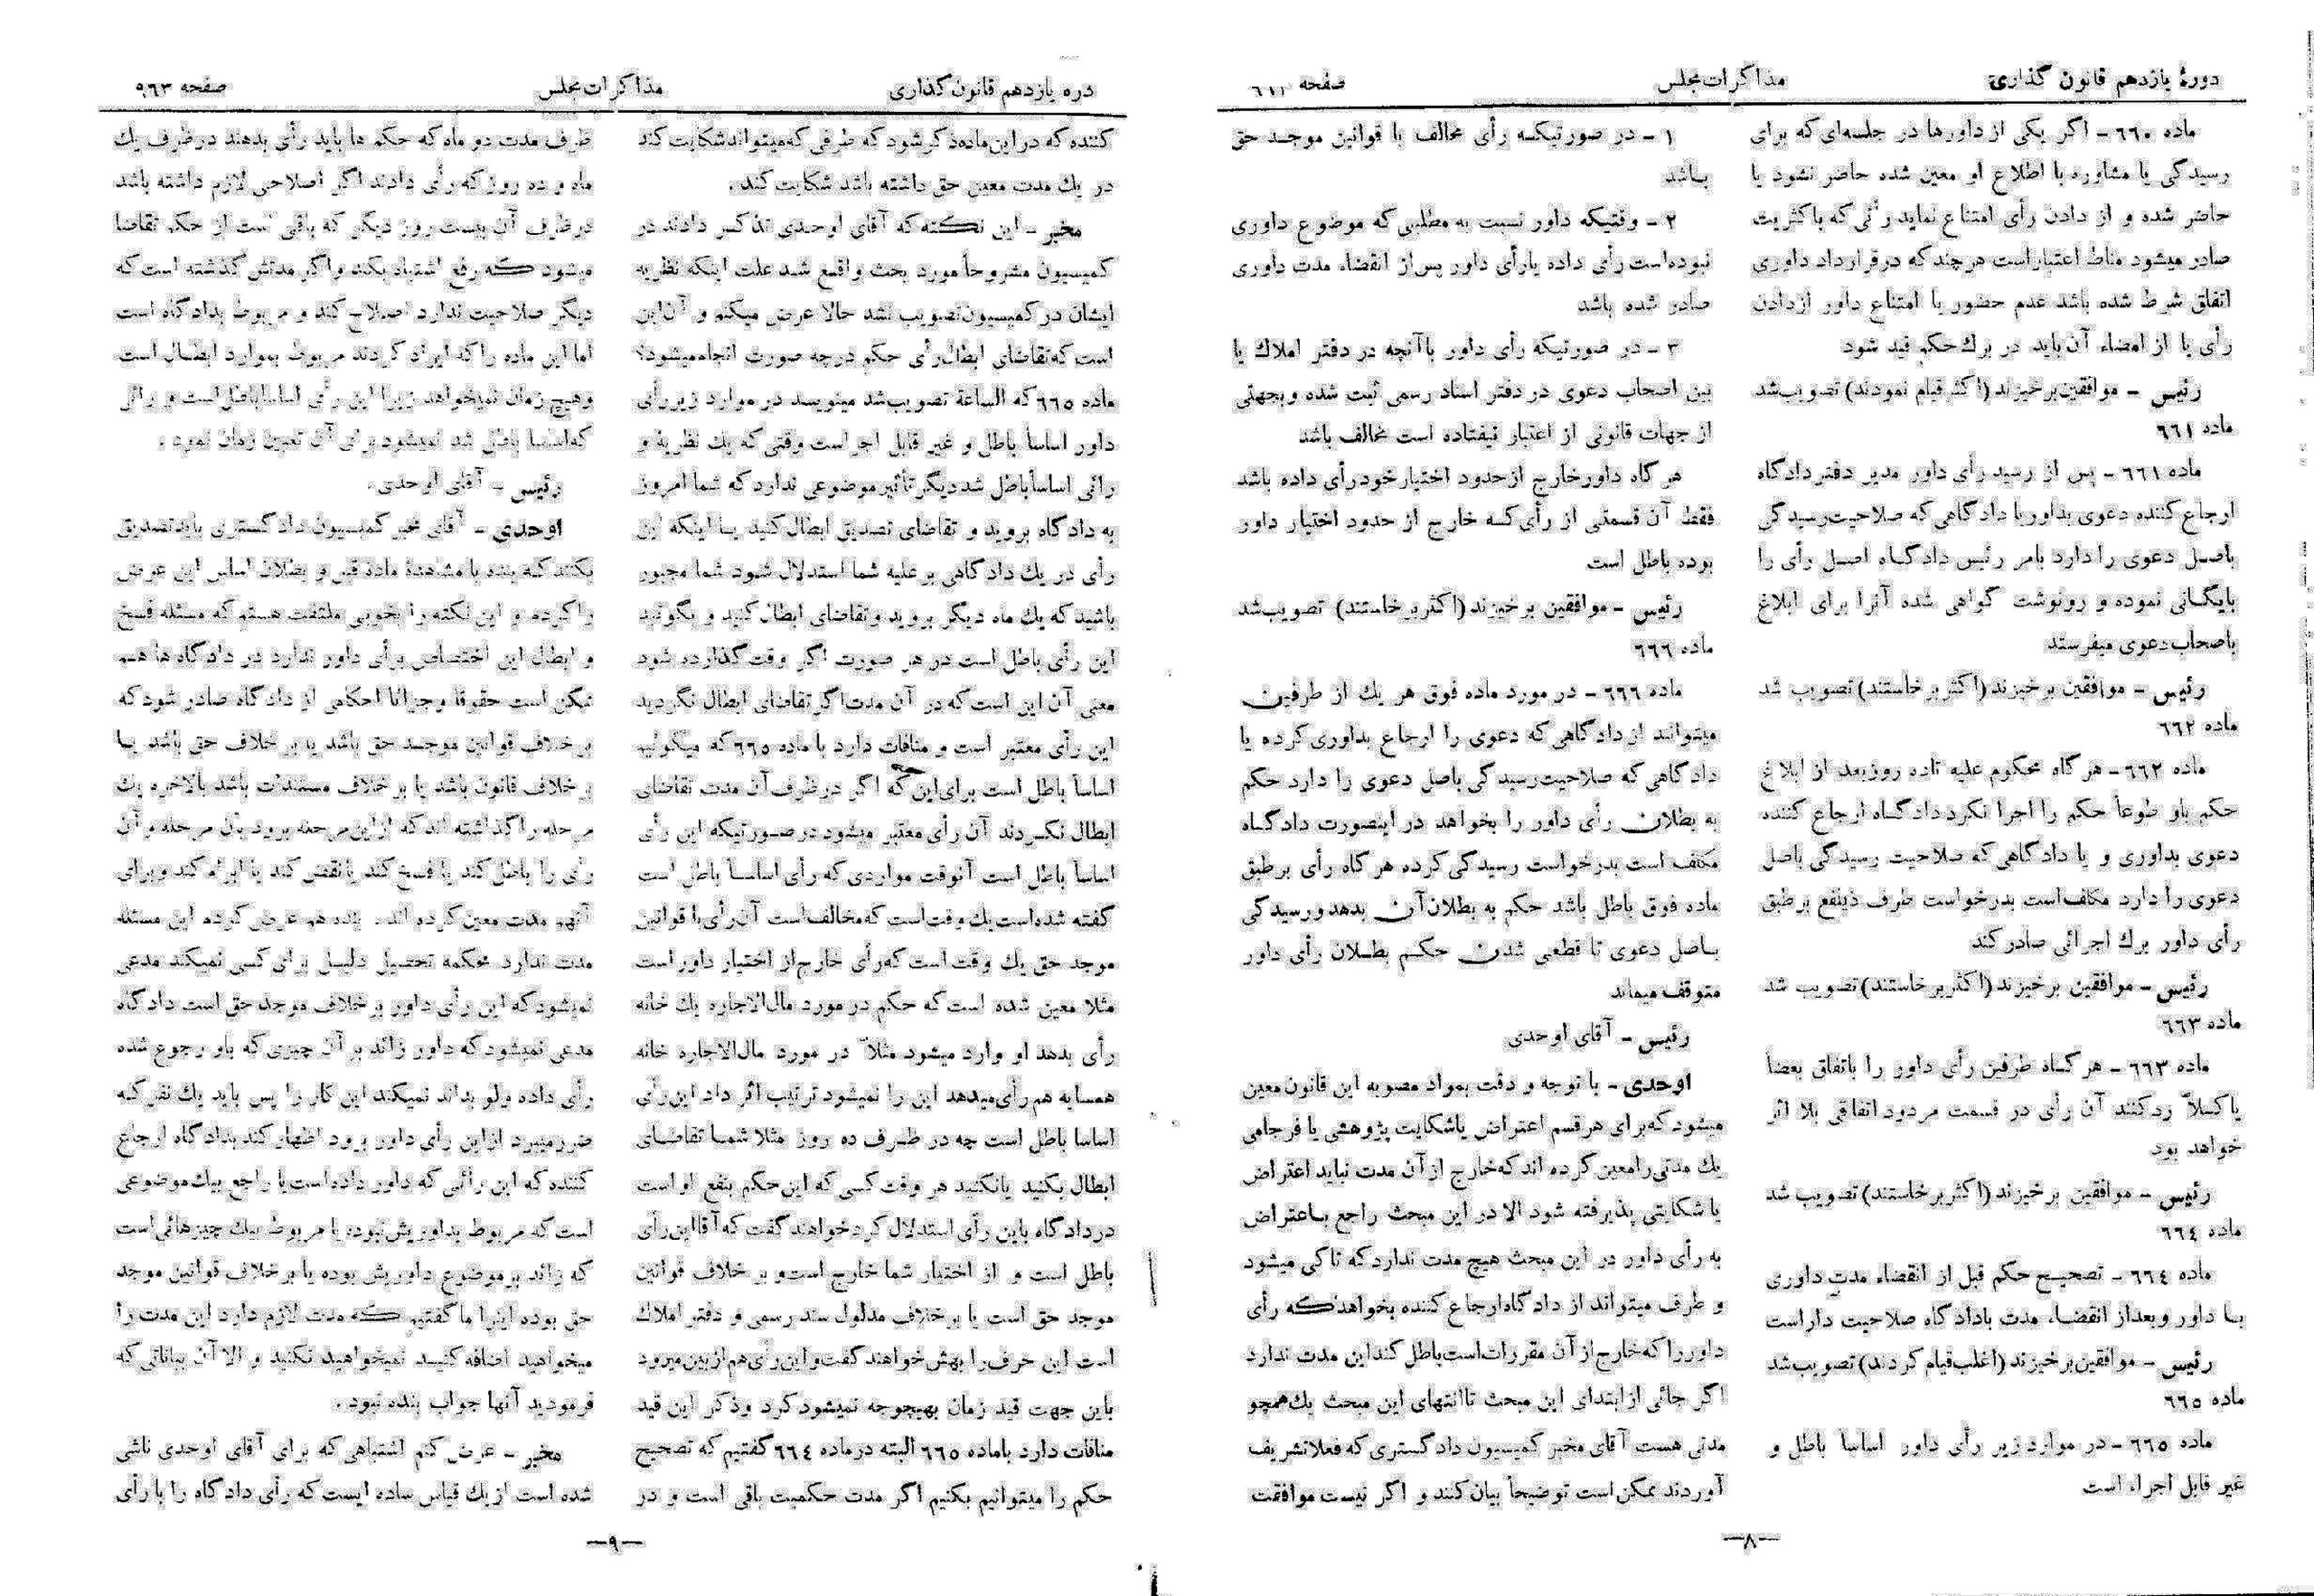 دورۀ یازدهم قانون گذاری
مذاکرات مجلس
صفحه ٦١١
ماده ٦٦٠ - اگر یکی از داورها در جلسه‌ای که برای
رسیدگی یا مشاوره با اطلاع او معین شده حاضر نشود یا
حاضر شده و از دادن رأی امتناع نماید رأئی که باکثریت
صادر میشود مناط اعتبار است هرچند که در قرارداد داوری
اتفاق شرط شده باشد عدم حضور یا امتناع داور از دادن
رأی یا از امضاء آن باید در برك حکم قید شود
رئیس - موافقین برخیزند (اکثر قیام نمودند) تصویب شد
ماده ٦٦١
ماده ٦٦١ - پس از رسید رأی داور مدیر دفتر دادگاه
ارجاع کننده دعوی بداور یا دادگاهی که صلاحیت رسیدگی
باصل دعوی را دارد بامر رئیس دادگاه اصل رأی را
بایگانی نموده و رونوشت گواهی شده آنرا برای ابلاغ
باصحاب دعوی میفرستد
رئیس - موافقین برخیزند (اکثر برخاستند) تصویب شد
ماده ٦٦٢
ماده ٦٦٢ - هرگاه محکوم علیه تاده روز بعد از ابلاغ
حکم باو طوعاً حکم را اجرا نکرد دادگاه ارجاع کننده
دعوی بداوری و یا دادگاهی که صلاحیت رسیدگی باصل
دعوی را دارد مکلف است بدرخواست طرف ذینفع برطبق
رأی داور برك اجرائی صادر کند
رئیس - موافقین برخیزند (اکثر برخاستند) تصویب شد
ماده ٦٦٣
ماده ٦٦٣ - هرگاه طرفین رأی داور را باتفاق بعضاً
یا کلاً رد کنند آن رأی در قسمت مردود اتفاقی بلا اثر
خواهد بود
رئیس - موافقین برخیزند (اکثر برخاستند) تصویب شد
ماده ٦٦٤
ماده ٦٦٤ - تصحیح حکم قبل از انقضاء مدت داوری
با داور و بعد از انقضاء مدت بادادگاه صلاحیت دار است
رئیس - موافقین برخیزند (اغلب قیام کردند) تصویب شد
ماده ٦٦٥
ماده ٦٦٥ - در موارد زیر رأی داور اساساً باطل و
غیر قابل اجراء است
١ - در صورتیکه رأی مخالف با قوانین موجد حق
باشد
٢ - وقتیکه داور نسبت به مطلبی که موضوع داوری
نبوده است رأی داده یا رأی داور پس از انقضاء مدت داوری
صادر شده باشد
٣ - در صورتیکه رأی داور با آنچه در دفتر املاك یا
بین اصحاب دعوی در دفتر اسناد رسمی ثبت شده و بجهتی
از جهات قانونی از اعتبار نیفتاده است مخالف باشد
هر گاه داور خارج از حدود اختیار خود رأی داده باشد
فقط آن قسمتی از رأی که خارج از حدود اختیار داور
بوده باطل است
رئیس - موافقین برخیزند (اکثر برخاستند) تصویب شد
ماده ٦٦٦
ماده ٦٦٦ - در مورد ماده فوق هر یك از طرفین
میتوانند از دادگاهی که دعوی را ارجاع بداوری کرده یا
دادگاهی که صلاحیت رسیدگی باصل دعوی را دارد حکم
به بطلان رأی داور را بخواهد در اینصورت دادگاه
مکلف است بدرخواست رسیدگی کرده هرگاه رأی برطبق
ماده فوق باطل باشد حکم به بطلان آن بدهد و رسیدگی
باصل دعوی تا قطعی شدن حکم بطلان رأی داور
متوقف میماند
رئیس - آقای اوحدی
اوحدی - با توجه و دقت بمواد مصوبه این قانون معین
میشود که برای هر قسم اعتراض یا شکایت پژوهشی یا فرجامی
یك مدتی را معین کرده اند که خارج از آن مدت نباید اعتراض
یا شکایتی پذیرفته شود الا در این مبحث راجع باعتراض
به رأی داور در این مبحث هیچ مدت ندارد که تاکی میشود
و طرف میتواند از دادگاه ارجاع کننده بخواهد که رأی
داور را که خارج از آن مقررات است باطل کند این مدت ندارد
اگر جائی از ابتدای این مبحث تا انتهای این مبحث یك همچو
مدتی هست آقای مخبر کمیسیون دادگستری که فعلا تشریف
آوردند ممکن است توضیحاً بیان کنند و اگر نیست موافقت
—٨—
دره یازدهم قانون گذاری
مذاکرات مجلس
صفحه ٩٦٣
کننده که در این ماده ذکر شود که طرفی که میتواند شکایت کند
در یك مدت معین حق داشته باشد شکایت کند .
مخبر - این نکته که آقای اوحدی تذکر دادند در
کمیسیون مشروحاً مورد بحث واقع شد علت اینکه نظریه
ایشان در کمیسیون تصویب نشد حالا عرض میکنم و آن این
است که تقاضای ابطال رأی حکم در چه صورت انجام میشود؟
ماده ٦٦٥ که الساعة تصویب شد مینویسد در موارد زیر رأی
داور اساساً باطل و غیر قابل اجر است وقتی که یك نظریه و
رائی اساساً باطل شد دیگر تأثیر موضوعی ندارد که شما امروز
به دادگاه بروید و تقاضای تصدیق ابطال کنید یا اینکه این
رأی در یك دادگاهی بر علیه شما استدلال شود شما مجبور
باشید که یك ماه دیگر بروید و تقاضای ابطال کنید و بگوئید
این رأی باطل است در هر صورت اگر وقت گذارده شود
معنی آن این است که در آن مدت اگر تقاضای ابطال نگردید
این رأی معتبر است و منافات دارد با ماده ٦٦٥ که میگوئیم
اساساً باطل است برای این که اگر در ظرف آن مدت تقاضای
ابطال نکردند آن رأی معتبر میشود در صورتیکه این رأی
اساساً باطل است آنوقت مواردی که رأی اساساً باطل است
گفته شده است یك وقت است که مخالف است آن رأی با قوانین
موجد حق یك وقت است که رأی خارج از اختیار داور است
مثلا معین شده است که حکم در مورد مال الاجاره یك خانه
رأی بدهد او وارد میشود مثلاً در مورد مال الاجاره خانه
همسایه هم رأی میدهد این را نمیشود ترتیب اثر داد این رأی
اساساً باطل است چه در ظرف ده روز مثلا شما تقاضای
ابطال بکنید یا نکنید هر وقت کسی که این حکم بنفع او است
در دادگاه باین رأی استدلال کرد خواهند گفت که آقا این رأی
باطل است و از اختیار شما خارج است و بر خلاف قوانین
موجد حق است یا بر خلاف مدلول سند رسمی و دفتر املاك
است این حرف را بهش خواهند گفت و این رأی هم از بین میرود
باین جهت قید زمان بهیچوجه نمیشود کرد و ذکر این قید
منافات دارد باماده ٦٦٥ البته در ماده ٦٦٤ گفتیم که تصحیح
حکم را میتوانیم بکنیم اگر مدت حکمیت باقی است و در
ظرف مدت دو ماه که حکم ها باید رأی بدهند در ظرف یك
ماه و ده روز که رأی دادند اگر اصلاحی لازم داشته باشد
در ظرف آن بیست روز دیگر که باقی است از حکم تقاضا
میشود که رفع اشتباه بکند و اگر مدتش گذشته است که
دیگر صلاحیت ندارد اصلاح کند و مربوط بدادگاه است
اما این ماده را که ایراد کردند مربوط بموارد ابطال است
و هیچ زمان نمیخواهد زیرا این رأی اساساً باطل است و رائی
که اساسا باطل شد نمیشود برای آن تعیین زمان نمود .
رئیس - آقای اوحدی.
اوحدی - آقای مخبر کمیسیون دادگستری باید تصدیق
بکنند که بنده با مشاهدهٔ ماده قبل و بطلان اساس این عرض
را کرده و این نکته را بخوبی ملتفت هستم که مسئله فسخ
و ابطال این اختصاص برأی داور ندارد در دادگاه ها هم
ممکن است حقوقا و جزائا احکامی از دادگاه صادر شود که
بر خلاف قوانین موجد حق باشد یا بر خلاف حق باشد یا
بر خلاف قانون باشد یا بر خلاف مستندات باشد بالاخره یك
مرحله را گذاشته اند که از این مرحله برود بآن مرحله و آن
رأی را باطل کند یا فسخ کند یا نقض کند یا ابرام کند و برای
آنهم مدت معین کرده اند . بنده هم عرض کردم این مسئله
مدت ندارد محکمه تحصیل دلیل برای کسی نمیکند مدعی
نمیشود که این رأی داور بر خلاف موجد حق است دادگاه
مدعی نمیشود که داور زائد بر آن چیزی که باو رجوع شده
رأی داده ولو بداند نمیکند این کار را پس باید یك نفر که
ضرر میبرد از این رأی داور برود اظهار کند بدادگاه ارجاع
کننده که این رائی که داور داده است یا راجع بیك موضوعی
است که مربوط بداوریش نبوده یا مربوط بیك چیزهائی است
که زائد بر موضوع داوریش بوده یا بر خلاف قوانین موجد
حق بوده اینرا ما گفتیم که مدت لازم دارد این مدت را
میخواهید اضافه کنید نمیخواهید نکنید و الا آن بیاناتی که
فرمودید آنها جواب بنده نبود .
مخبر - عرض کنم اشتباهی که برای آقای اوحدی ناشی
شده است از یك قیاس ساده ایست که رأی دادگاه را با رأی
—٩—